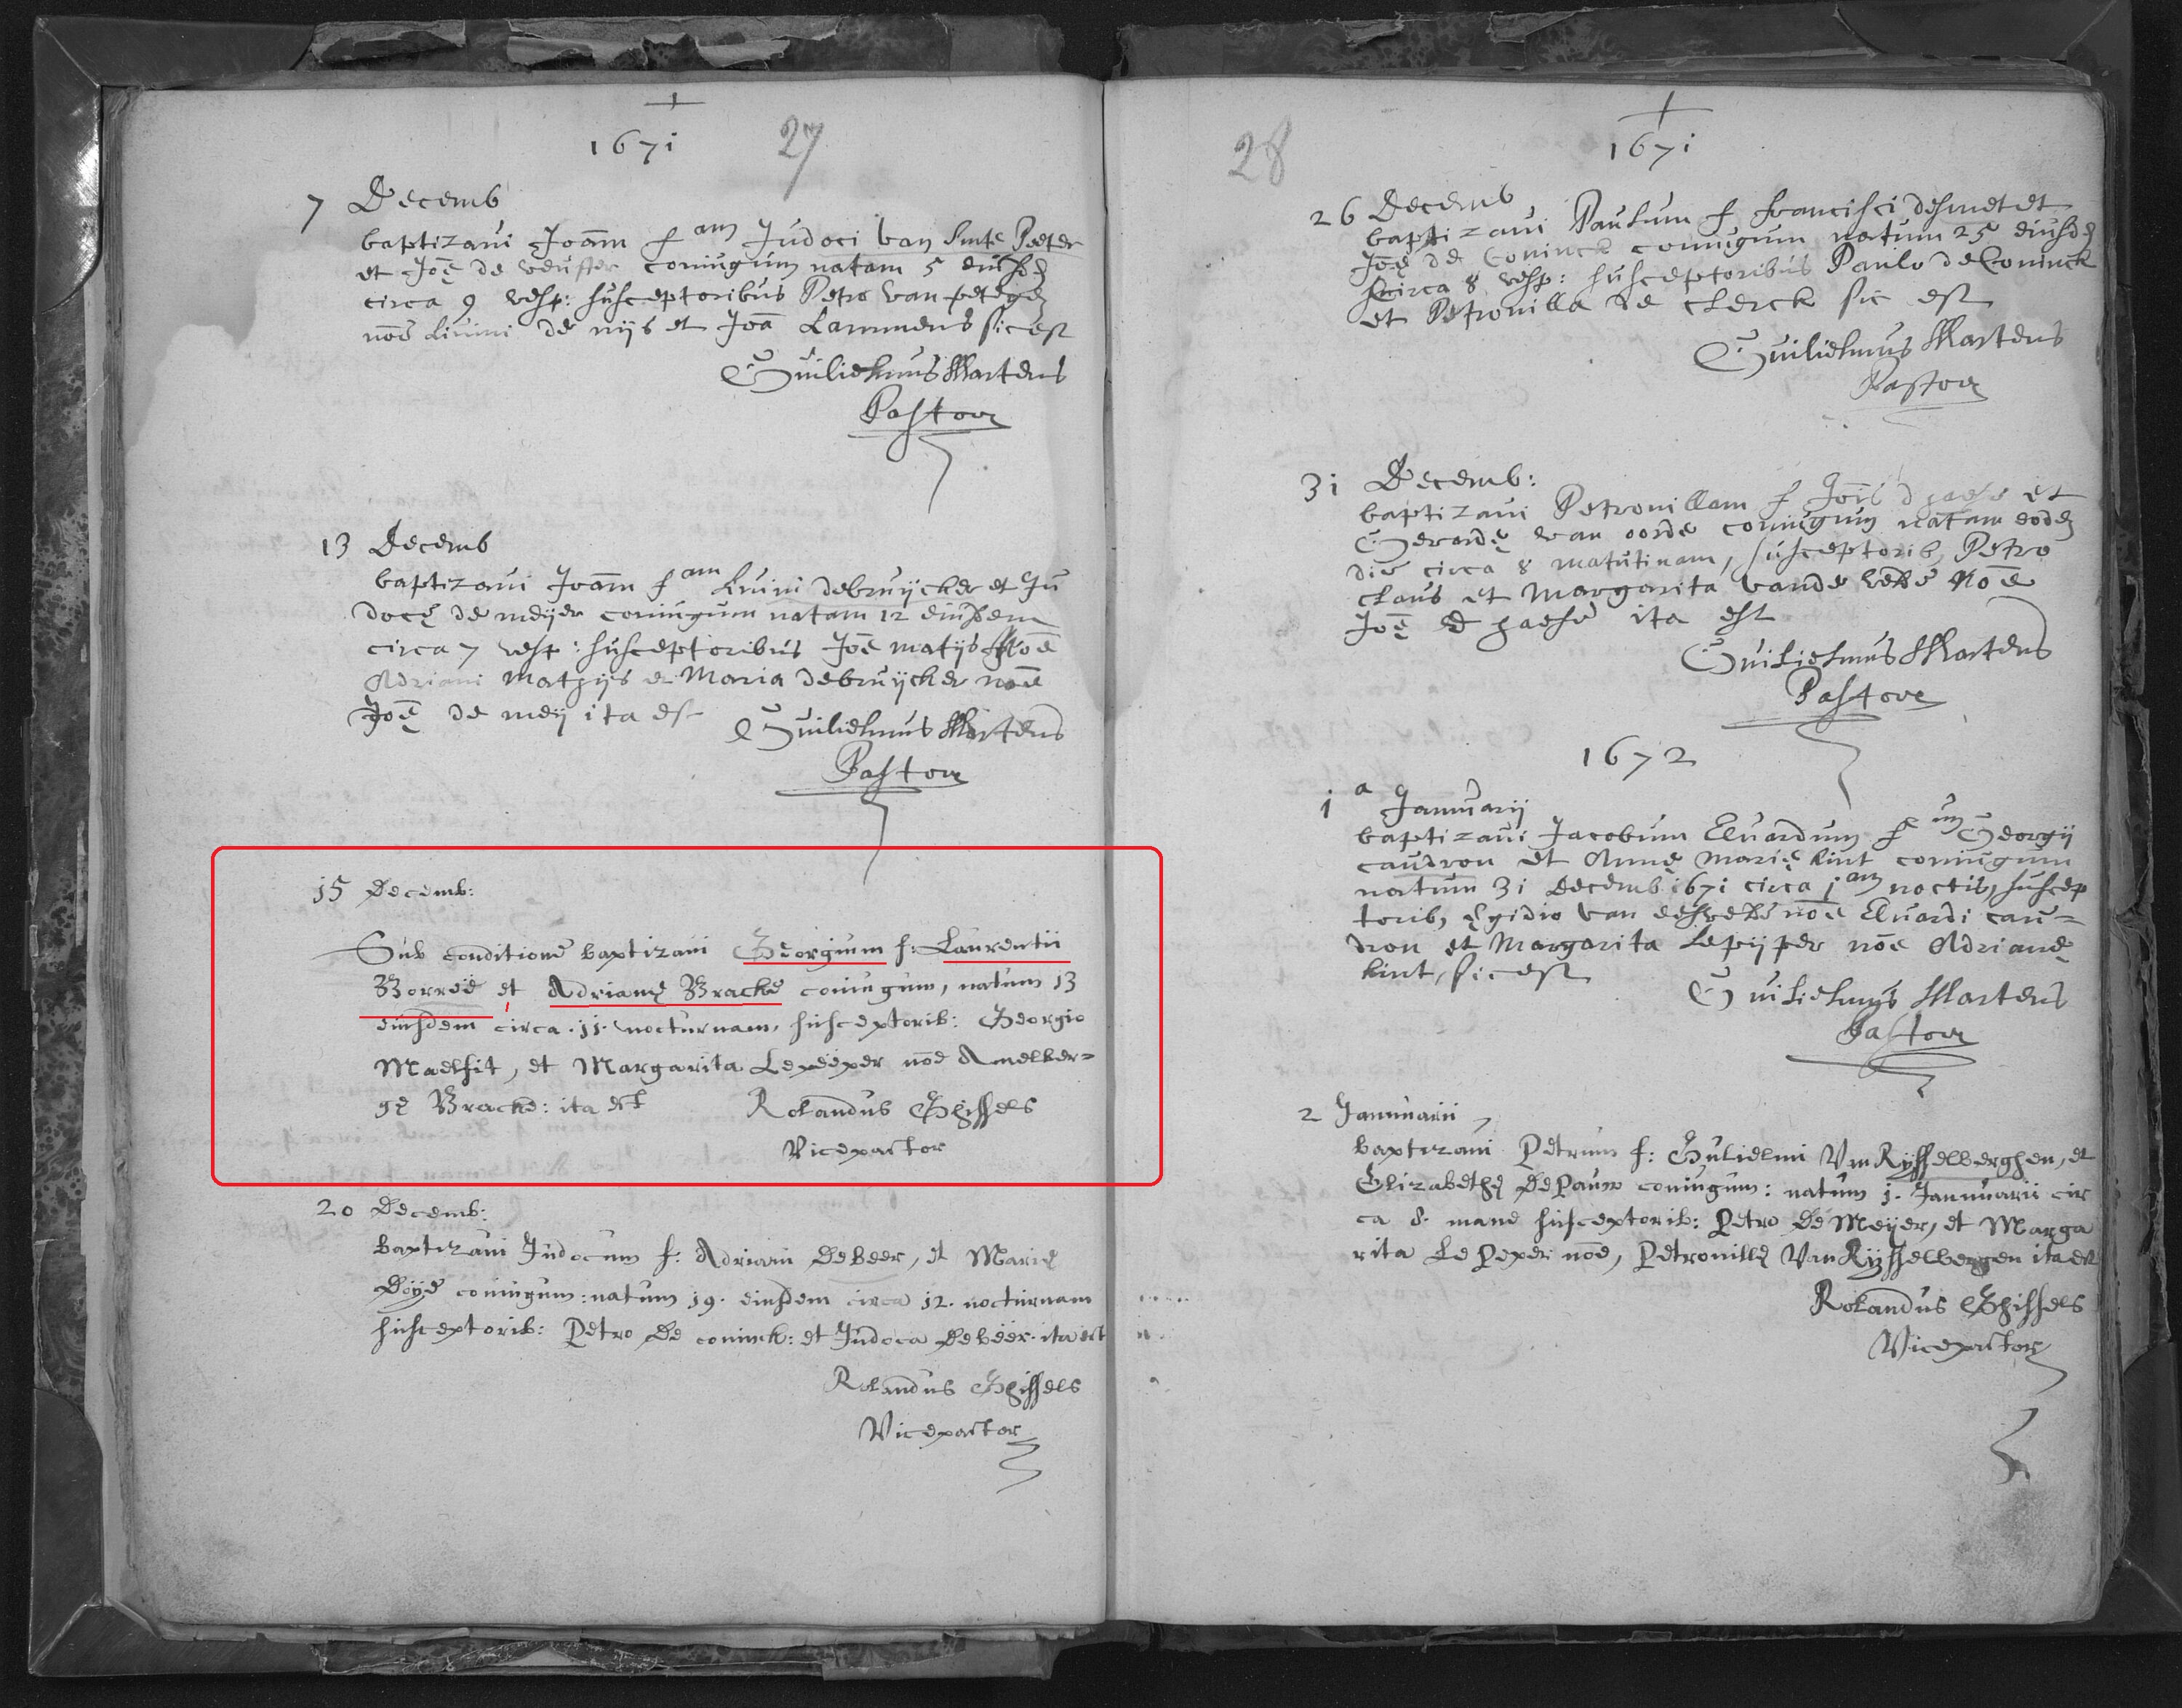 1671
27
7 Decemb
baptizavi Joām f am Judoci van Sinte Peeter
et Joē de coniugum natam 5 eiusdē
circa 9 vesp: susceptoribus Petro van petegē
nōe Livini de nijs et Joā Lammens sic est
Guilielmus Martens
Pastor
13 Decemb
baptizavi Joām f am Livini debruijcker et Ju
docę de meijer coniugum natam 12 eiusdem
circa 7 vesp: susceptoribus Joē matijs nōe
Adriani Mathijs et Maria debruijcker nōe
Joę de meij ita est
Guilielmus Martens
Pastor
15 Decemb:
Sub conditione baptizavi Georgium f: Laurentii
Borreé et Adrianę Bracke coniugum, natum 13
eiusdem circa .11. nocturnam, susceptorib: Georgio
Maelfit, et Margarita Lepeÿper nōe Amelber=
gę Bracke: ita est Rolandus Ghissels
Vicepastor
20 Decemb:
baptizavi Judocum f: Adriani De Beer, et Marię
Doÿe coniugum: natum 19. eiusdem circa 12. nocturnam
susceptorib: Petro De coninck: et Judoca De beér. ita est
Rolandus Ghissels
Vicepastor
28
1671
26 Decemb
baptizavi Paulum f francisci desmet et
Joę de Coninck coniugum natum 25 eiusdē
circa 8 vesp: susceptoribus Paulo de Coninck
et Petronilla de clerck sic est
Guilielmus Martens
Pastor
31 Decemb:
baptizavi Petronillam f Joīs d haese et
Gerardę van oorde coniugum natam eodē
die circa 8 matutinam, susceptorib, Petro
claus et Margarita vande velde nōe
Joę d haese ita est
Guilielmus Martens
Pastor
1672
1 a Januarij
baptizavi Jacobum Eluardum f um Georgij
caudron et Annę Marię kint coniugum
natum 31 Decemb 1671 circa 1 am noctis, suscep
torib, Egidio van nōe Eluardi cau=
dron et Margarita Lepijper nōe Adrianę
kint, sic est
Guilielmus Martens
Pastor
2 Januarii
baptizavi Petrum f: Gulielmi Van Rÿsselberghen, et
Elizabethę De Pauw coniugum: natum 1. Januarii cir
ca 8. mane susceptorib: Petro De Meÿer, et Marga
rita Le Peper nōe, Petronillę Van Rÿsselbergen ita est
Rolandus Ghissels
Vicepastor